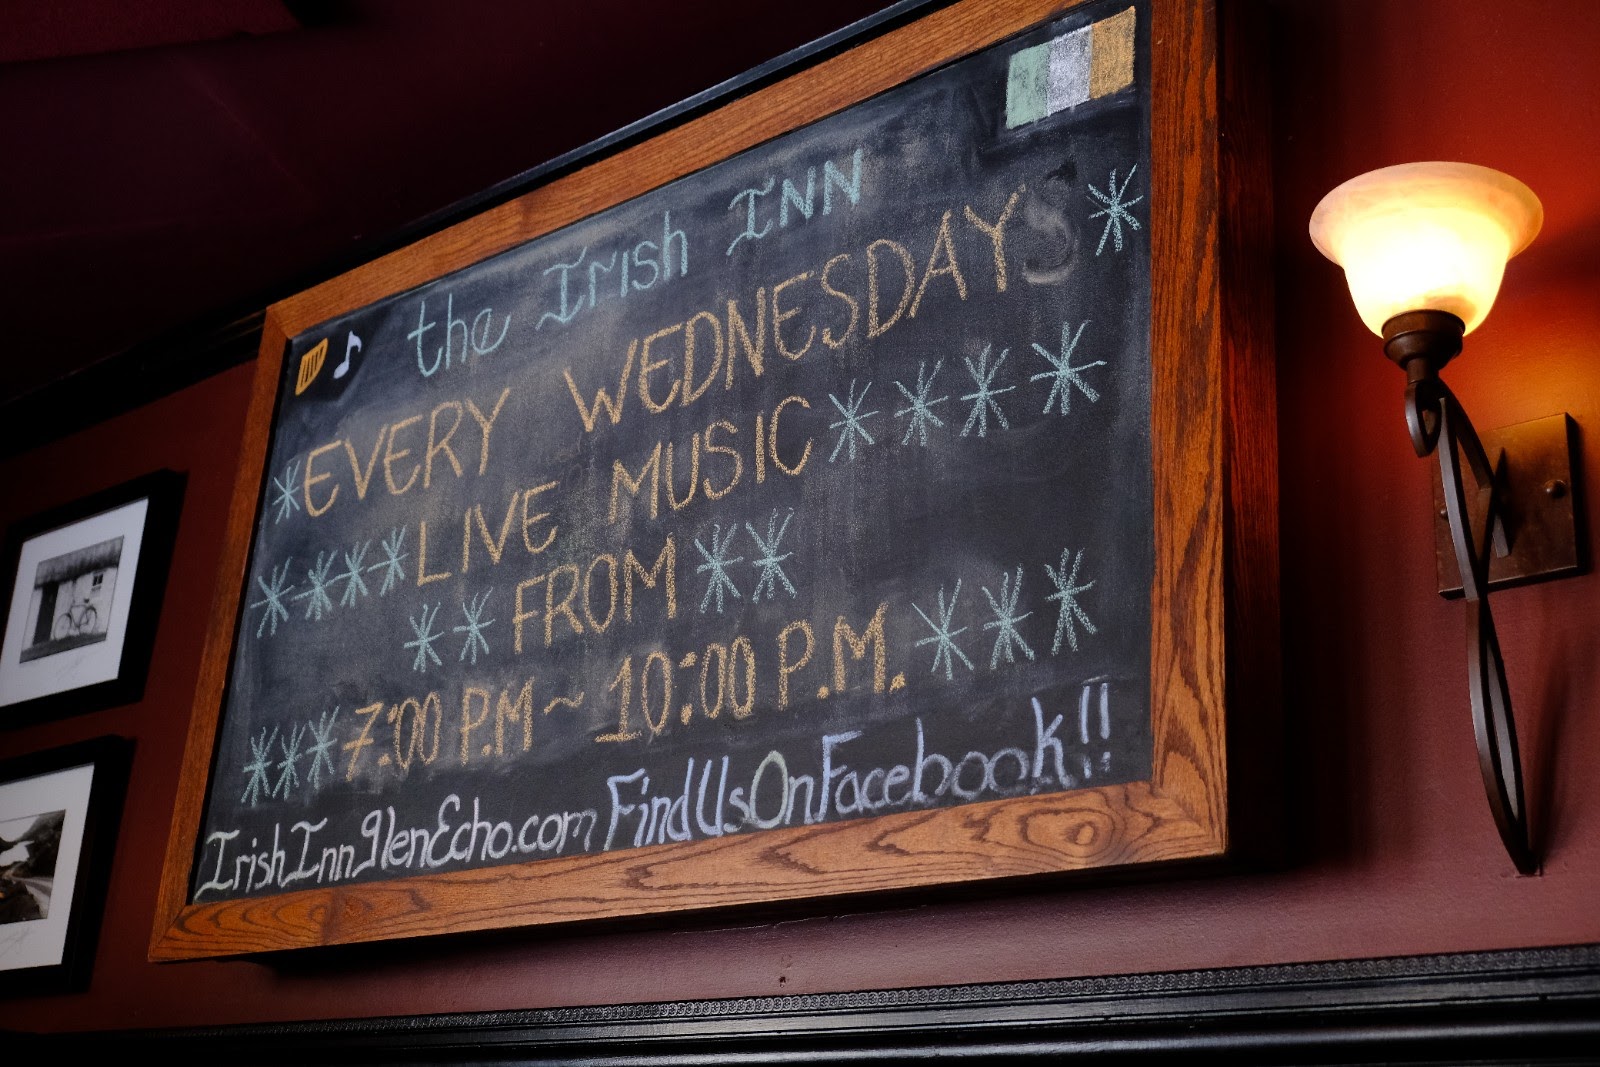 the Irish INN
*EVERY WEDNESDAY *
****LIVE MUSIC****
**FROM**
***7:00 P.M ~ 10:00 P.M.***
IrishInnglenEcho.com FindUsOnFacebook!!